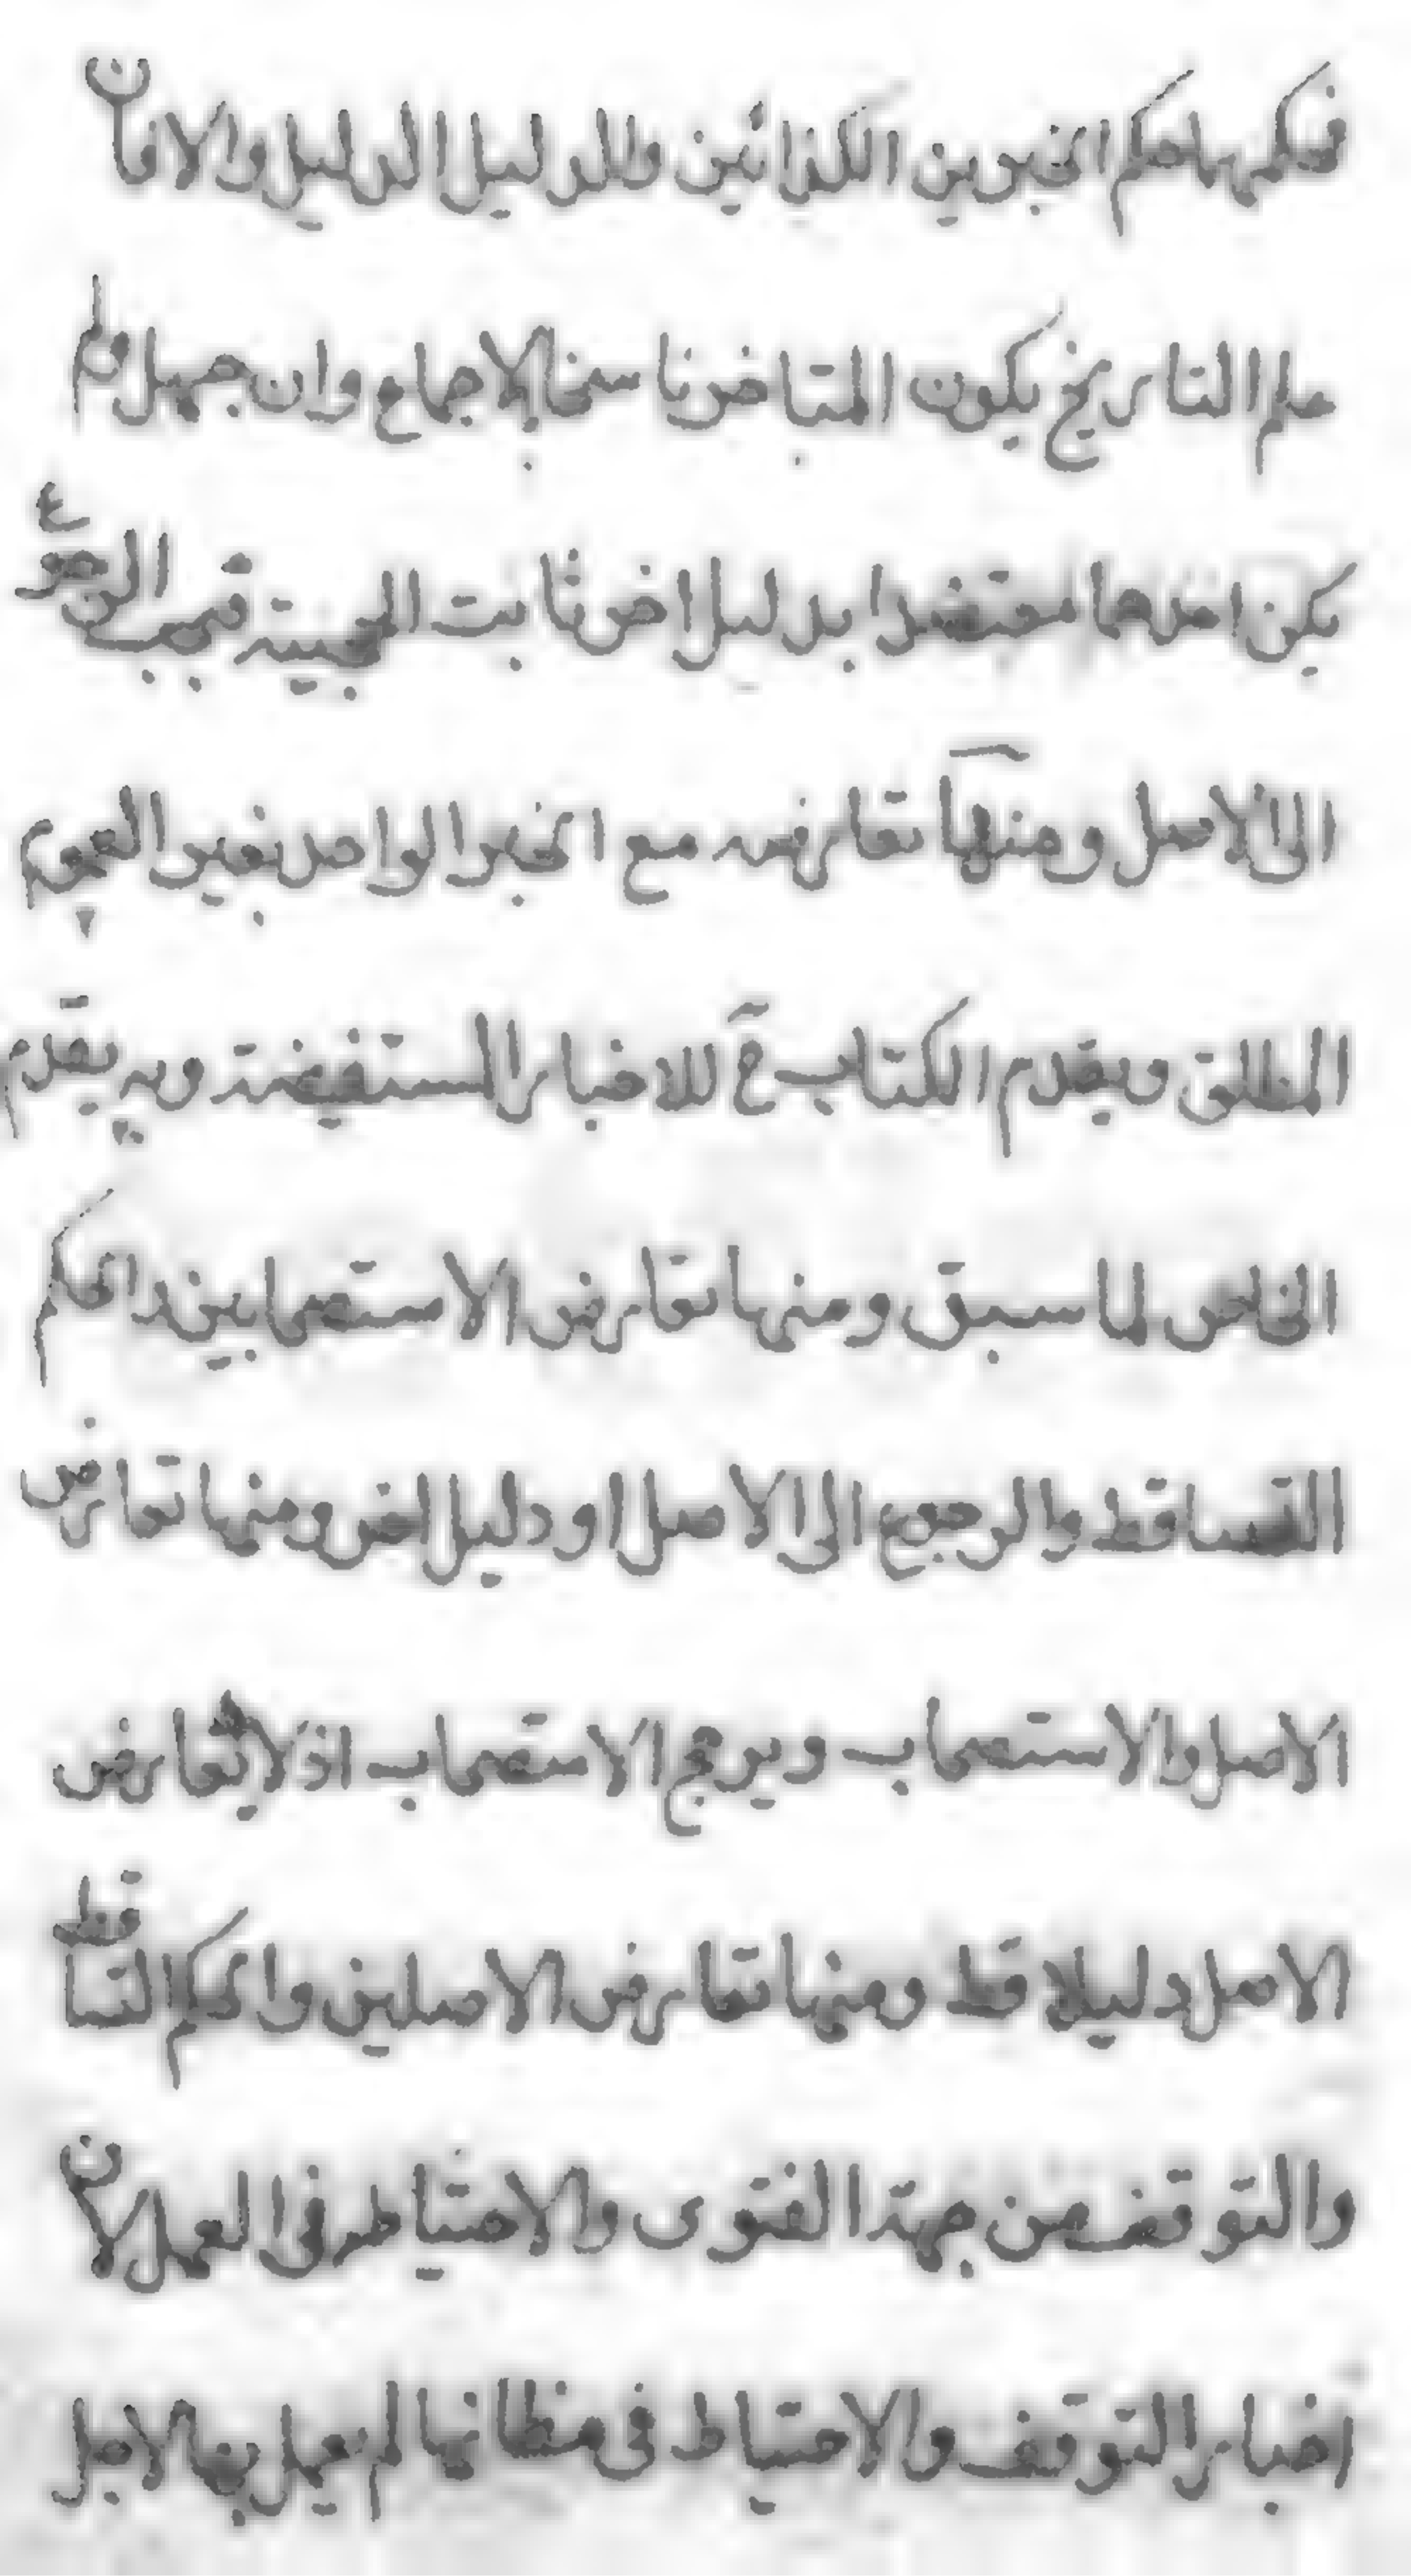 فحكمهما حكم الخبرين الكذائين والدليل الدليل والا فان
علم التاريخ يكون المتاخر ناسخا بالاجماع وان جهل ولم
يكن احدهما معتضدا بدليل اخر ثابت الحجية فيجب الرجوع
الى الاصل ومنها تعارضه مع الخبر الواحد بغير العموم
المطلق ويقدم الكتاب ح للاخبار المستفيضة وبه يقدم
الخاص لما سبق ومنها تعارض الاستصحابين والحكم
التساقط والرجوع الى الاصل او دليل اخر ومنها تعارض
الاصل والاستصحاب ويرجح الاستصحاب اذ لا يعارض
الاصل دليلا قط ومنها تعارض الاصلين والحكم التساقط
والتوقف من جهة الفتوى والاحتياط في العمل لان
اخبار التوقف والاحتياط في مظانها لم يعمل بها لاجل